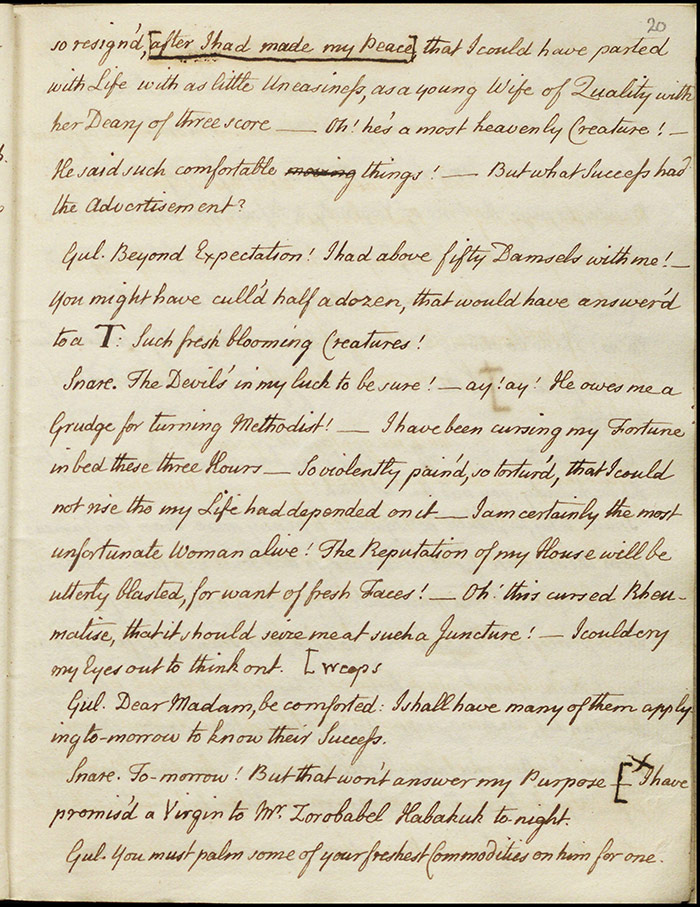 20
so resign'd, [after I had made my Peace], that I could have parted
with Life with as little Uneasiness, as a young Wife of Quality with
her Deary of three score — Oh! he's a most heavenly Creature! —
He said such comfortable moving things! — But what Success had
the Advertisement?
Gul. Beyond Expectation! I had above fifty Damsels with me! —
You might have cull'd half a dozen, that would have answer'd
to a T: Such fresh blooming Creatures!
Snare. The Devil's in my luck to be sure! — ay! ay! He owes me a
Grudge for turning Methodist! — I have been cursing my Fortune
in bed these three Hours — So violently pain'd, so tortur'd, that I could
not rise tho my Life had depended on it — I am certainly the most
unfortunate Woman alive! The Reputation of my House will be
utterly blasted, for want of fresh Faces! — Oh! this cursed Rheu-
matise, that it should seize me at such a Juncture! — I could cry
my Eyes out to think ont. [weeps
Gul. Dear Madam, be comforted: I shall have many of them apply
ing to-morrow to know their Success.
Snare. To-morrow! But that won't answer my Purpose — [x I have
promis'd a Virgin to Mr. Zorobabel Habakuk to-night.
Gul. You must palm some of your freshest Commodities on him for one.